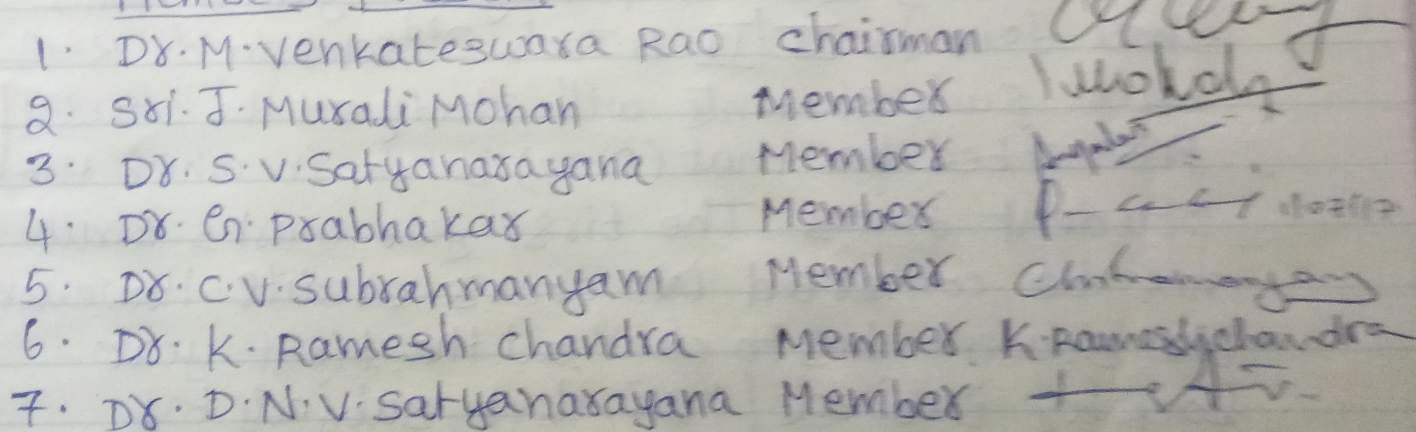 Members Present
1. Dr. M. Venkateswara Rao Chairman
2. Sri. J. Murali Mohan Member
3. Dr. S. V. Satyanarayana Member
4. Dr. G. Prabhakar Member
5. Dr. C. V. Subrahmanyam Member
6. Dr. K. Ramesh Chandra Member K. Rameshchandra
7. Dr. D. N. V. Satyanarayana Member